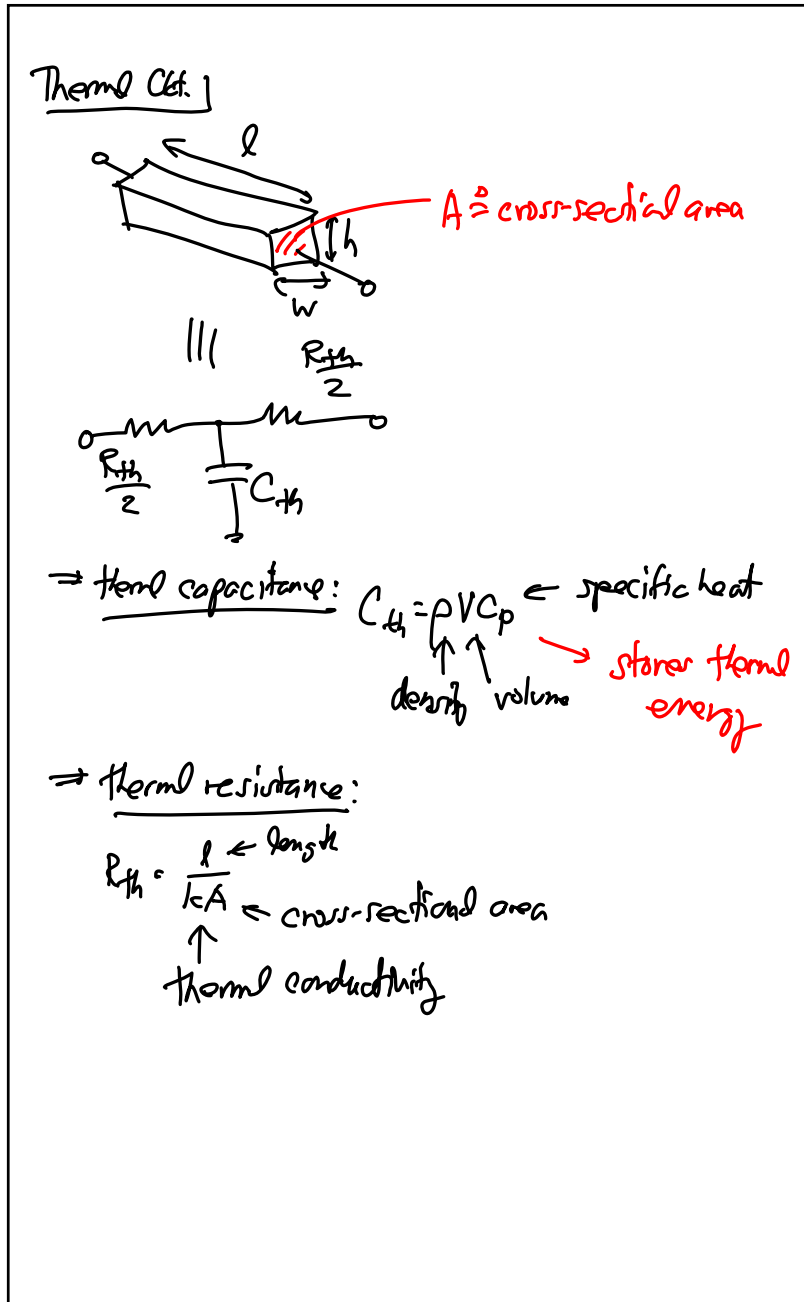 Thermal Ckt.
l
A ≙ cross-sectional area
h
w
|||
R_th/2
R_th/2
C_th
⇒ thermal capacitance: C_th = ρVC_p ← specific heat
density volume
→ stores thermal
energy
⇒ thermal resistance:
R_th = l/kA ← length
← cross-sectional area
thermal conductivity